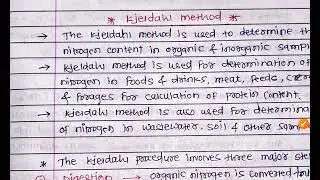 * Kjeldahl method *
→ The Kjeldahl method is used to determine th
nitrogen content in organic & inorganic sampl
→ Kjeldahl method is used for determination of
nitrogen in foods & drinks, meat, feeds,
& forages for calculation of protein content.
→ Kjeldahl method is also used for determina
of nitrogen in wastewater, soil & other sam
* The Kjeldahl procedure involves three major ste
Digestion → organic nitrogen is converted